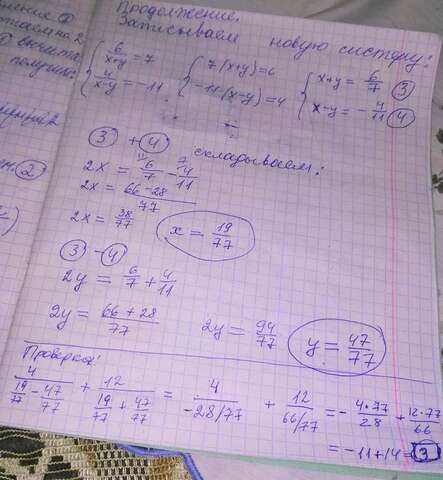 Продолжение.
Записываем новую систему:
{ 6/(x+y) = 7 { 7(x+y)=6 { x+y = 6/7 (3)
{ 4/(x-y) = -11 { -11(x-y)=4 { x-y = -4/11 (4)
(3) + (4) складываем:
2x = 6/7 - 4/11
2x = (66-28)/77
2x = 38/77 x = 19/77
(3) - (4)
2y = 6/7 + 4/11
2y = (66+28)/77 2y = 94/77 y = 47/77
Проверка:
4/(19/77 - 47/77) + 12/(19/77 + 47/77) = 4/(-28/77) + 12/(66/77) = -4*77/28 + 12*77/66
= -11+14=3